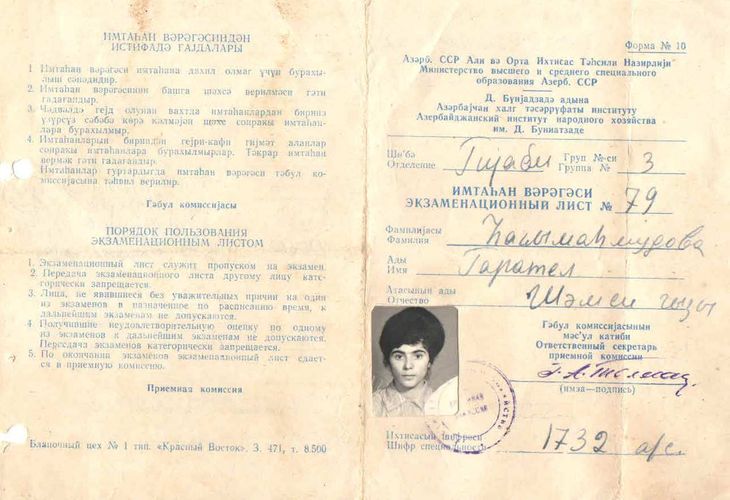 ИМТАҺАН ВӘРӘГӘСИНДӘН
ИСТИФАДӘ ГАЈДАЛАРЫ
1. Имтаһан вәрәгәси имтаһана дахил олмаг үчүн бурахы-
лыш сәнәдидир.
2. Имтаһан вәрәгәсинин башга шәхсә верилмәси гәти
гадағандыр.
3. Ҹәдвәлдә гејд олунан вахтда имтаһанлардан биринә
үзүрсүз сәбәбә көрә кәлмәјән шәхс сонракы имтаһан-
лара бурахылмыр.
4. Имтаһанларын бириндән гејри-кафи гијмәт аланлар
сонракы имтаһанлара бурахылмырлар. Тәкрар имтаһан
вермәк гәти гадағандыр.
Имтаһанлар гуртардыгда имтаһан вәрәгәси гәбул ко-
миссијасына тәһвил верилир.
Гәбул комиссијасы
ПОРЯДОК ПОЛЬЗОВАНИЯ
ЭКЗАМЕНАЦИОННЫМ ЛИСТОМ
1. Экзаменационный лист служит пропуском на экзамен.
2. Передача экзаменационного листа другому лицу кате-
горически запрещается.
3. Лица, не явившиеся без уважительных причин на один
из экзаменов в назначенное по расписанию время, к
дальнейшим экзаменам не допускаются.
4. Получившие неудовлетворительную оценку по одному
из экзаменов к дальнейшим экзаменам не допускаются.
Пересдача экзаменов категорически запрещается.
5. По окончании экзаменов экзаменационный лист сдает-
ся в приемную комиссию.
Приемная комиссия
Бланочный цех № 1 тип. «Красный Восток». З. 471, т. 8.500
Форма № 10
Азәрб. ССР Али вә Орта Ихтисас Тәһсили Назирлији
Министерство высшего и среднего специального
образования Азерб. ССР
Д. Бүнјадзадә адына
Азәрбајҹан халг тәсәррүфаты институту
Азербайджанский институт народного хозяйства
им. Д. Буниатзаде
Шө'бә
Отделение Гијаби Груп №-си
Группа № 3
ИМТАҺАН ВӘРӘГӘСИ
ЭКЗАМЕНАЦИОННЫЙ ЛИСТ № 79
Фамилијасы
Фамилия Һасымаһмудова
Ады
Имя Гарател
Атасынын ады
Отчество Шәмси гызы
Гәбул комиссијасынын
мәс'ул катиби
Ответственный секретарь
приемной комиссии
(имза—подпись)
Ихтисасын шифрәси
Шифр специальность 1732